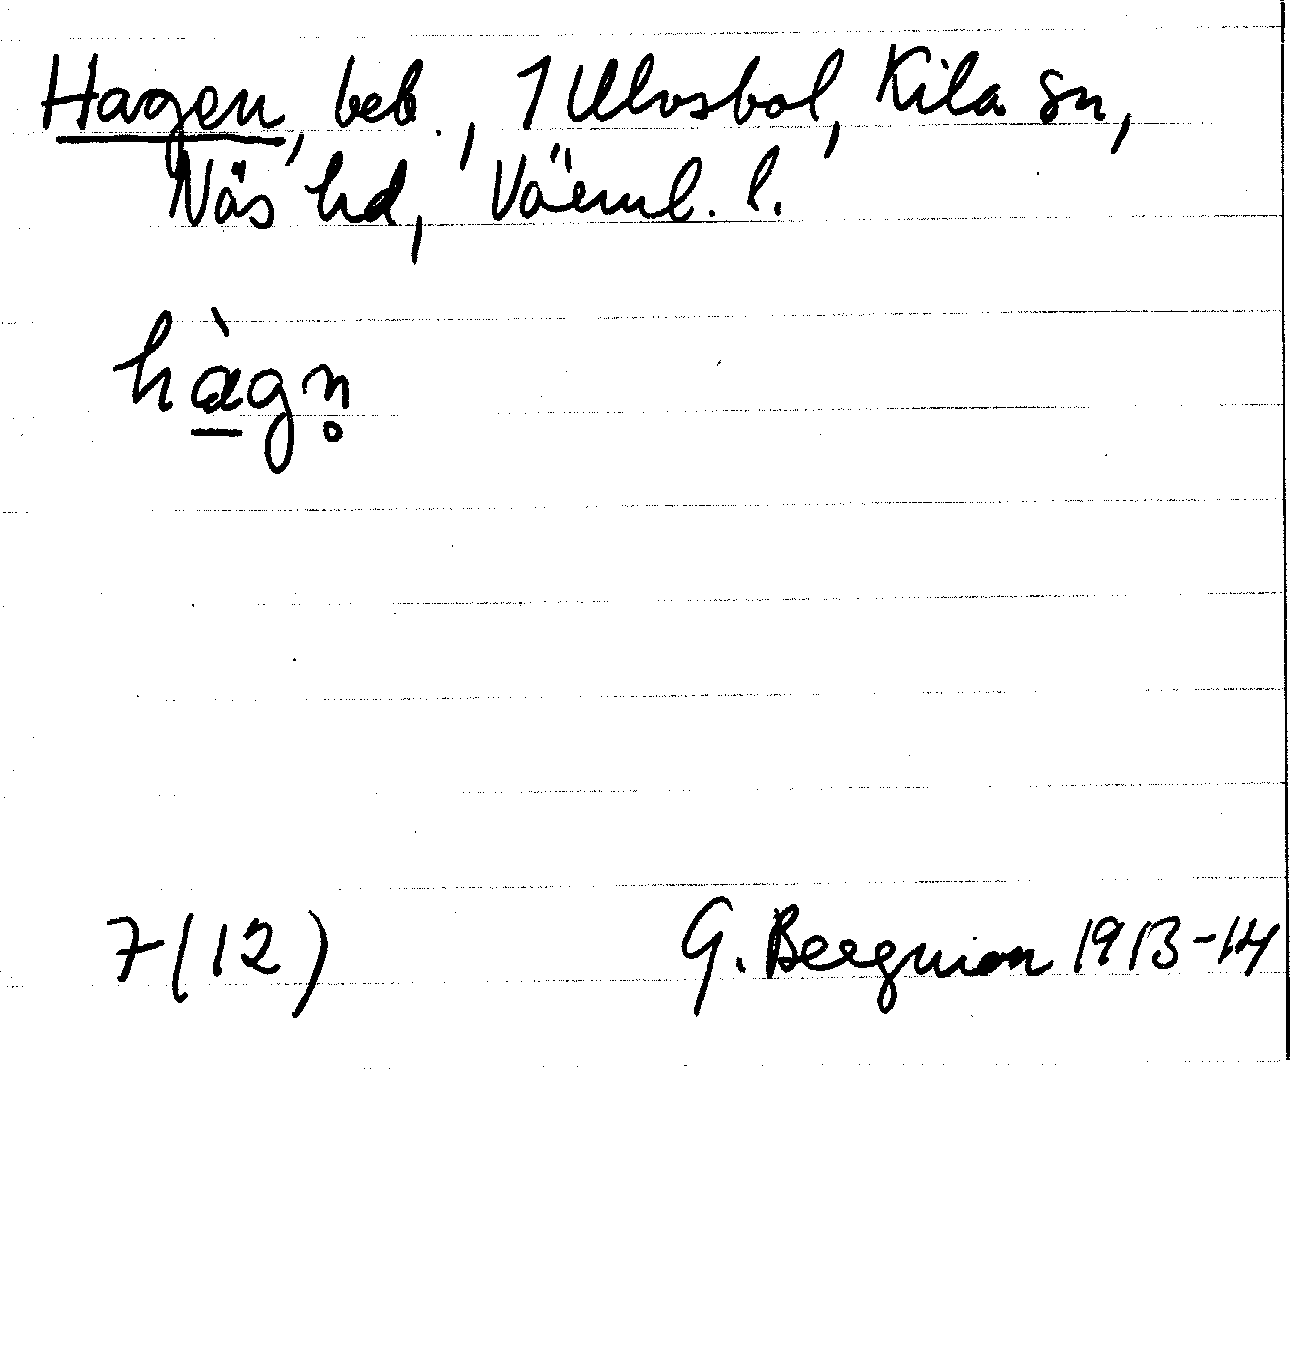 Hagen, beb., 1 Ulvsbol, Kila sn,
Näs hd, Värml. l.
hàgn̥
7(12) G. Bergman 1913-14